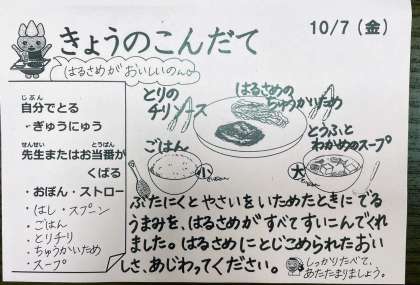 きょうのこんだて
10/7（金）
はるさめがおいしいのんo
じぶん
自分でとる
・ぎゅうにゅう
せんせい とうばん
先生またはお当番が
くばる
・おぼん・ストロー
・はし・スプーン
・ごはん
・とりチリ
・ちゅうかいため
・スープ
とりの
チリソース
はるさめの
ちゅうかいため
ごはん
小
とうふと
わかめのスープ
大
ぶたにくとやさいをいためたときにでる
うまみを、はるさめがすべてすいこんでくれ
ました。はるさめにとじこめられたおい
しさ、あじわってください。
しっかりたべて、
あたたまりましょう。